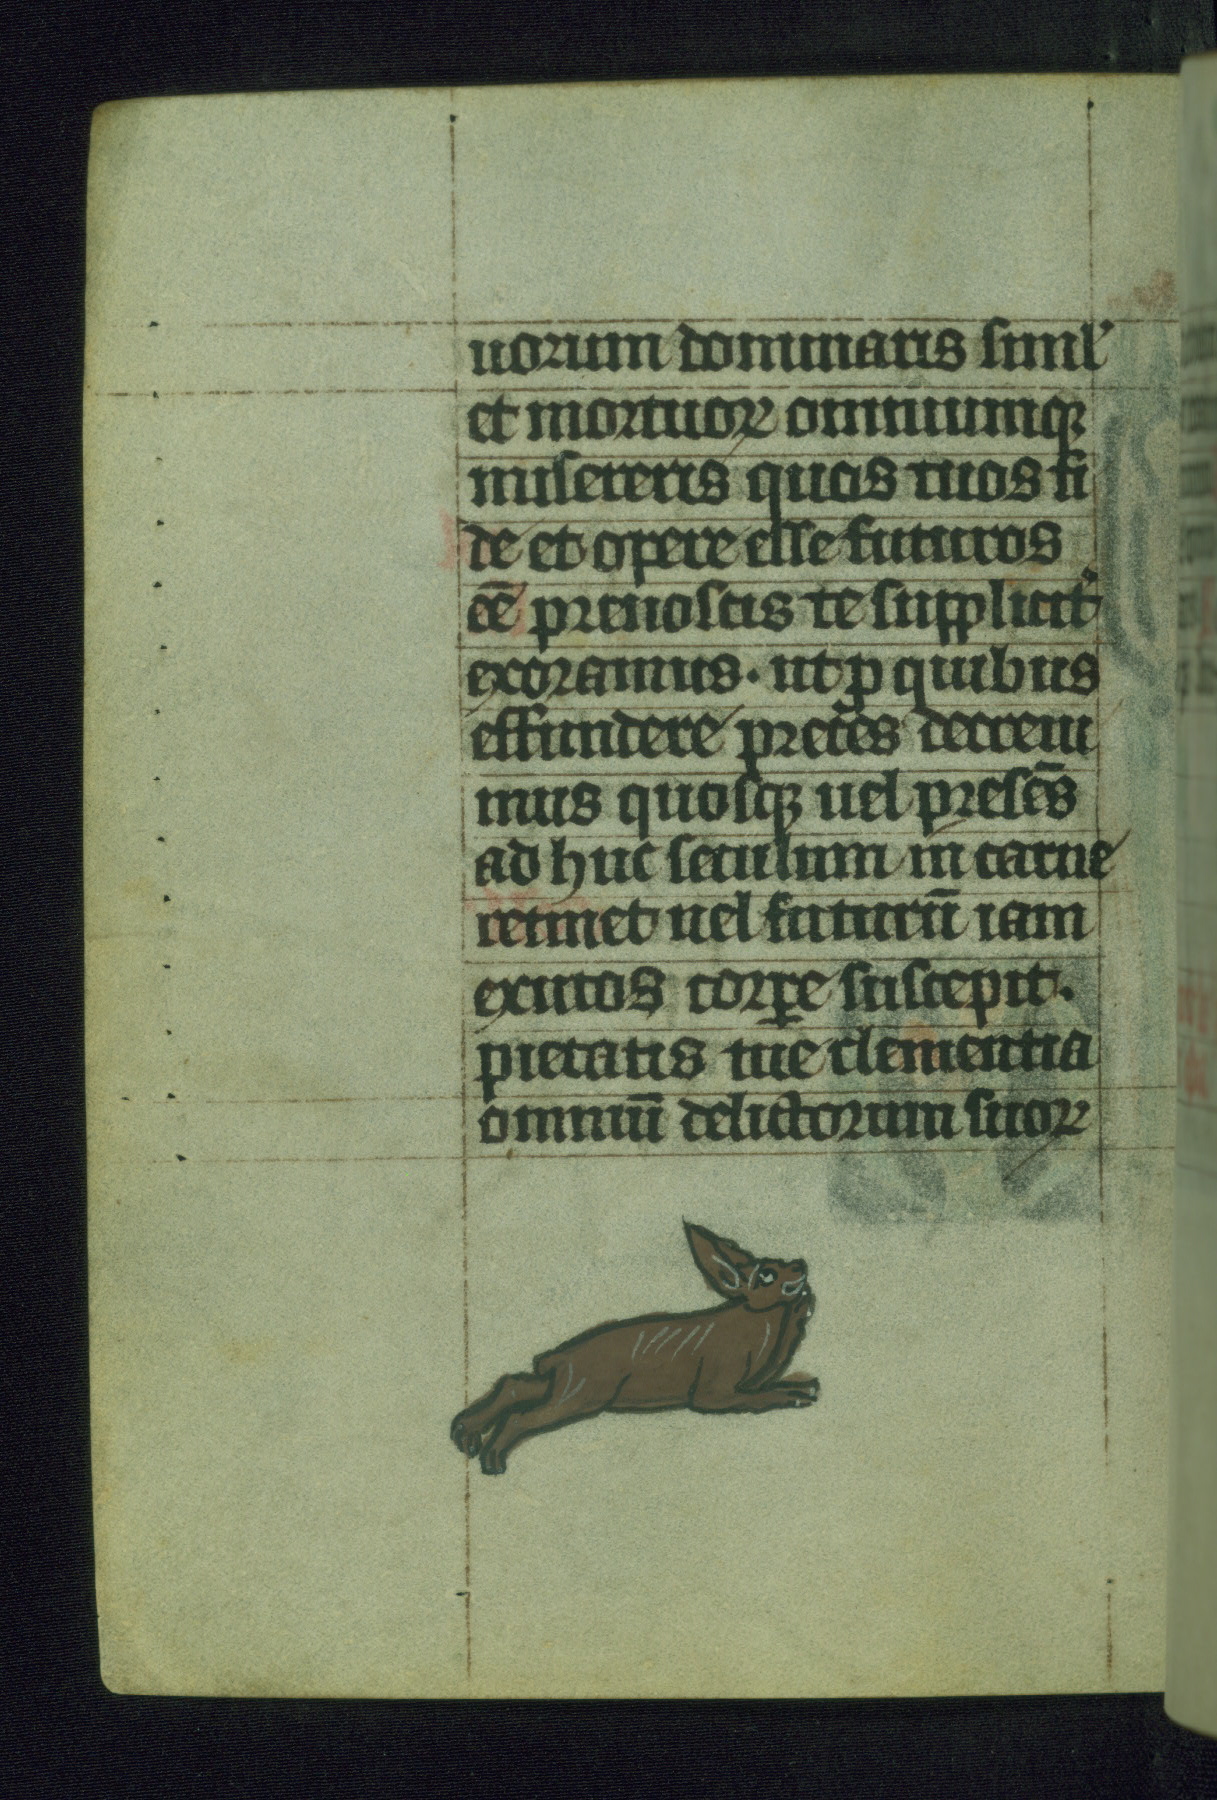 uorum dominaris simul
et mortuoꝝ omniumqꝫ
misereris quos tuos fi
de et opere esse futuros
cē prenoscis te suppliciť
exoramus · ut p quibus
effundere preces decreui
mus quosqꝫ uel presēs
ad huc seculum in carne
retinet uel futurū iam
exutos corꝑe suscepit ·
pietatis tue clementia
omniū delictorum suoꝝ